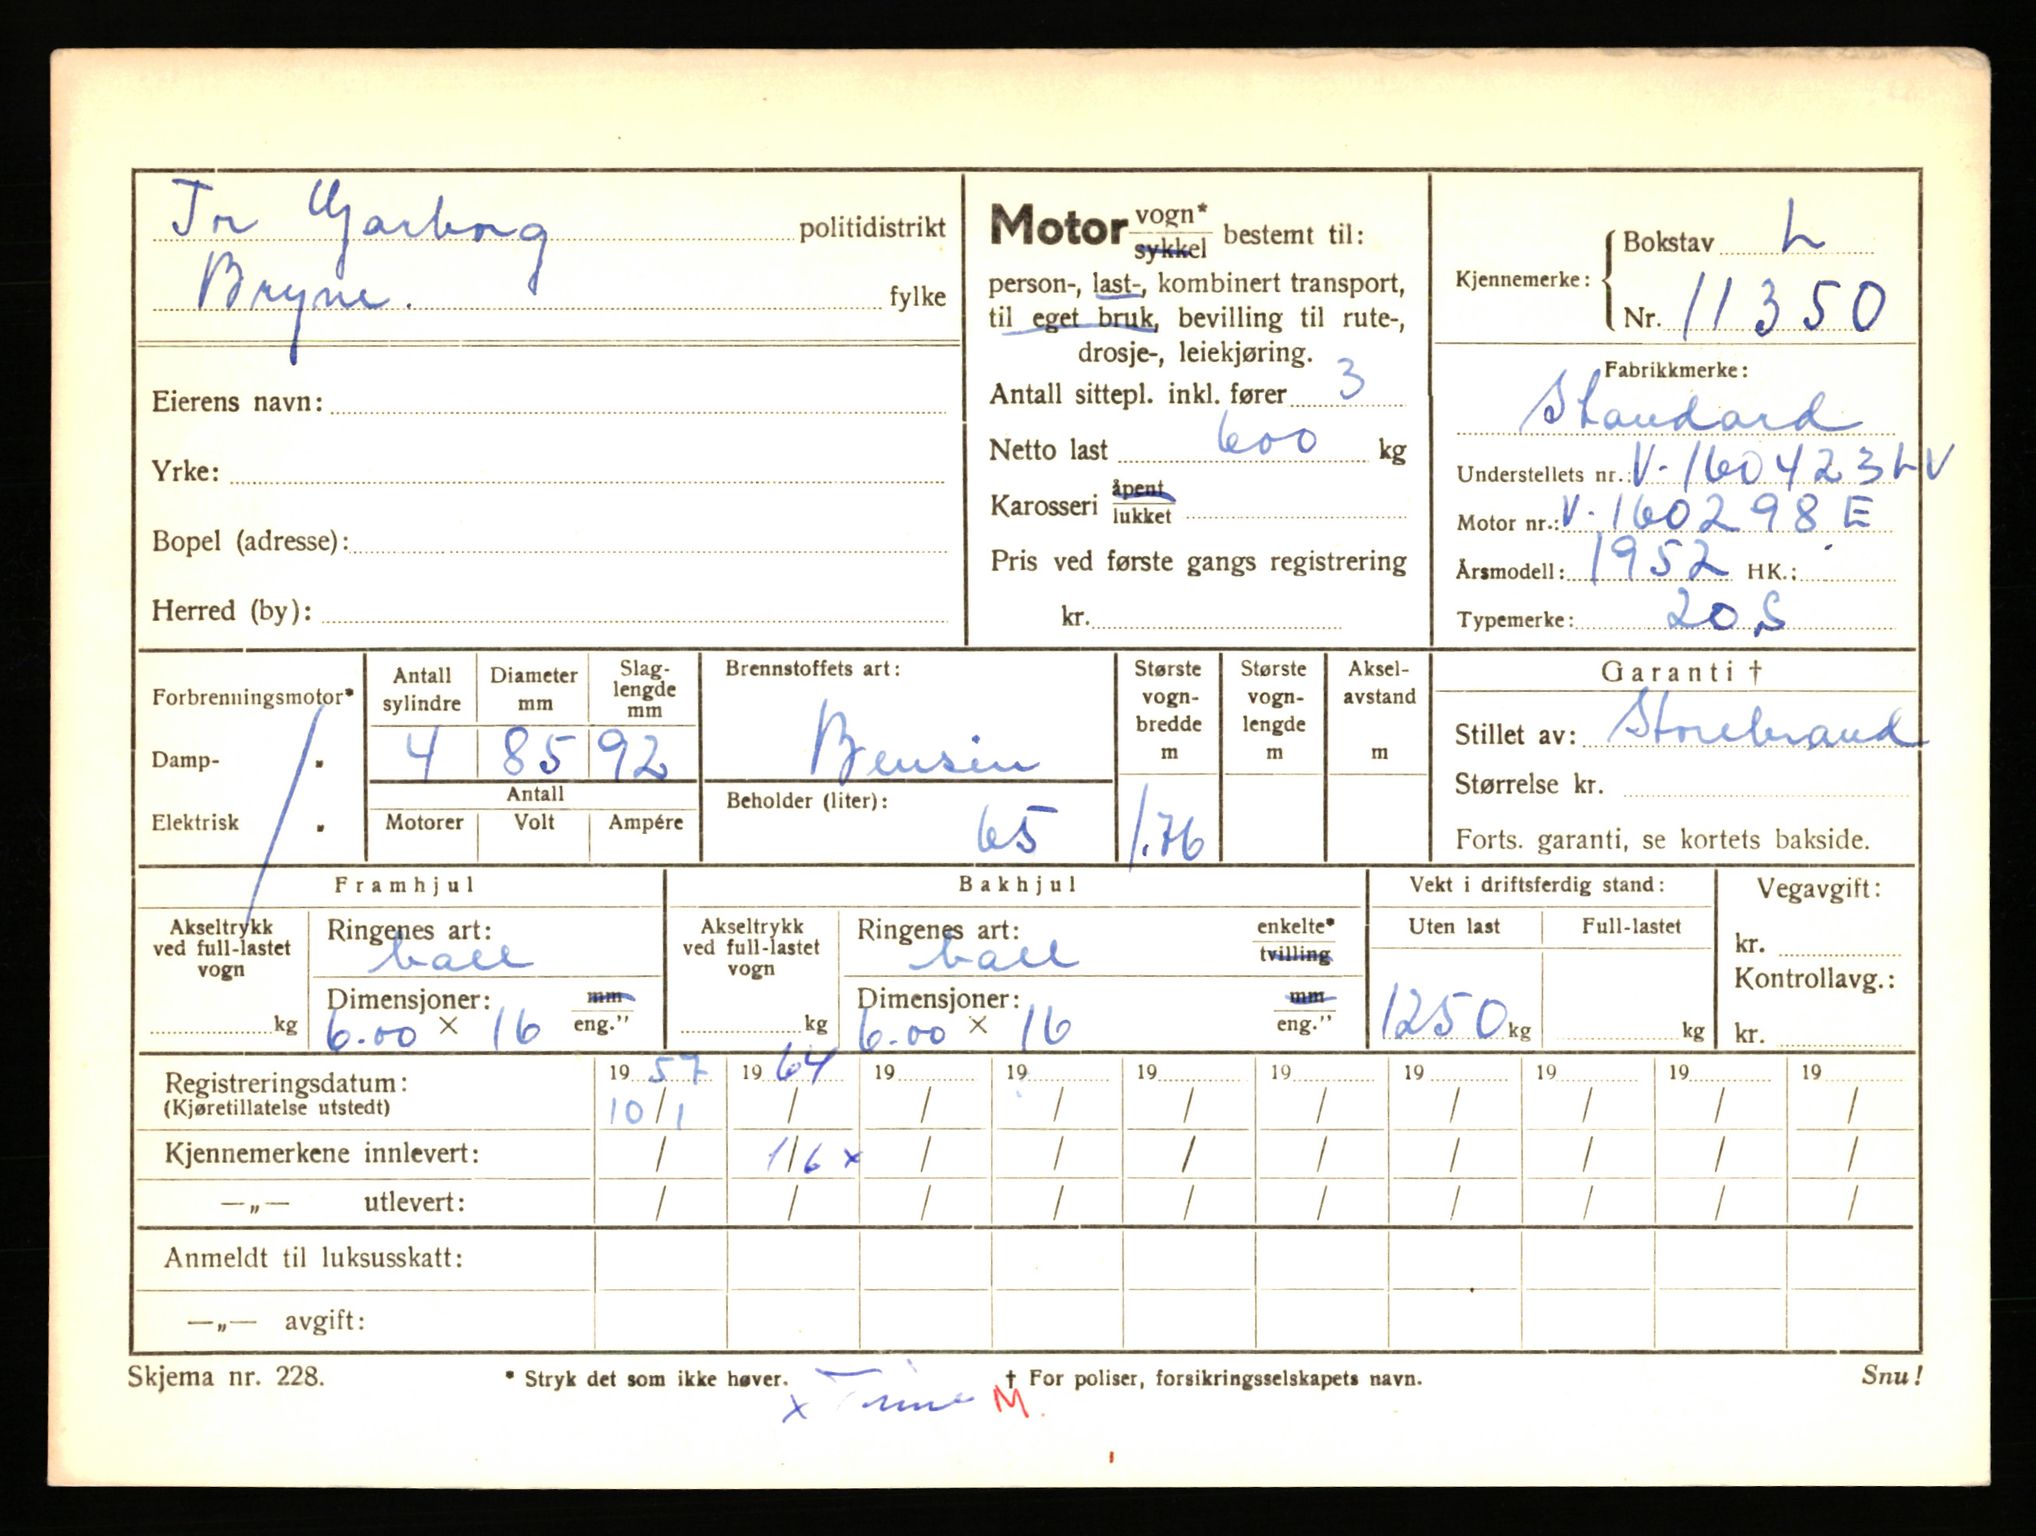 Tr Garborg politidistrikt
Bryne. fylke
Eierens navn:
Yrke:
Bopel (adresse):
Herred (by):
Motor vogn* sykkel bestemt til:
person-, last-, kombinert transport,
til eget bruk, bevilling til rute-,
drosje-, leiekjøring.
Antall sittepl. inkl. fører 3
Netto last 600 kg
Karosseri åpent lukket
Pris ved første gangs registrering
kr.
Kjennemerke: Bokstav L
Nr. 11350
Fabrikkmerke:
Standard
Understellets nr.: V-160423LV
Motor nr.: V-160298E
Årsmodell: 1952 HK.:
Typemerke: 20 S
Forbrenningsmotor*
Damp- "
Elektrisk "
Antall sylindre Diameter mm Slag-lengde mm
4 85 92
Antall
Motorer Volt Ampére
Brennstoffets art:
Bensin
Beholder (liter):
65
Største vogn-bredde m
1.76
Største vogn-lengde m
Aksel-avstand m
Garanti †
Stillet av: Storebrand
Størrelse kr.
Forts. garanti, se kortets bakside.
Framhjul
Akseltrykk ved full-lastet vogn
kg
Ringenes art:
ball
Dimensjoner: mm
6.00 × 16 eng."
Bakhjul
Akseltrykk ved full-lastet vogn
kg
Ringenes art: enkelte*
ball tvilling
Dimensjoner: mm
6.00 × 16 eng."
Vekt i driftsferdig stand:
Uten last Full-lastet
1250 kg kg
Vegavgift:
kr.
Kontrollavg.:
kr.
Registreringsdatum: 19 57 19 64 19 19 19 19 19 19 19 19
(Kjøretillatelse utstedt) 10/1 / / / / / / / / /
Kjennemerkene innlevert: / 1/6 x / / / / / / / /
—„— utlevert: / / / / / / / / / /
Anmeldt til luksusskatt:
—„— avgift:
Skjema nr. 228. * Stryk det som ikke høver. † For poliser, forsikringsselskapets navn. Snu!
x M.